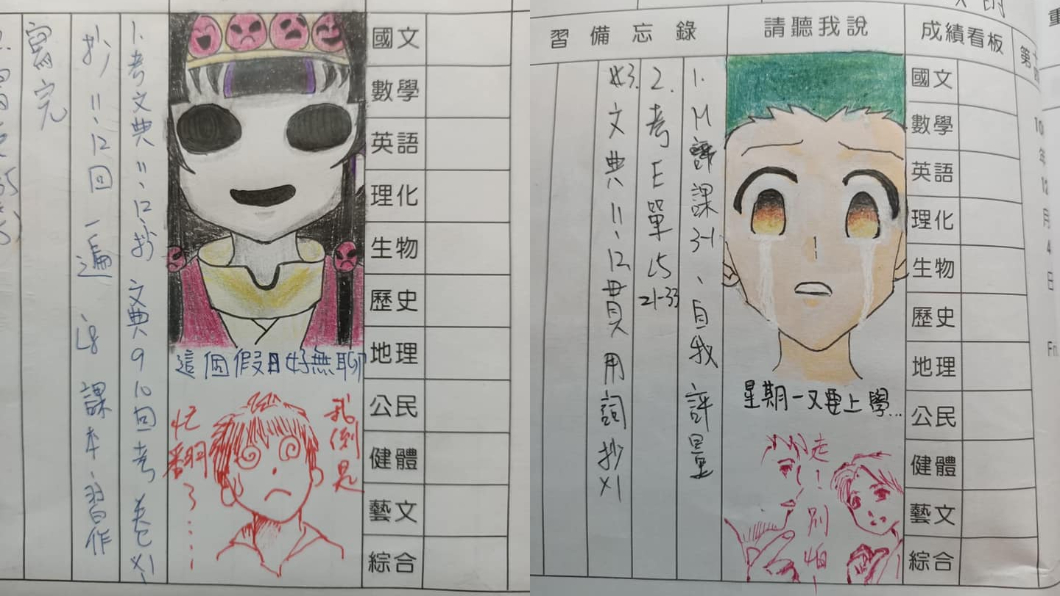 國文
數學
英語
理化
生物
歷史
地理
公民
健體
藝文
綜合
這個假日好無聊
我倒是
忙翻了....
1.考文典11、12抄文典9 10回考卷x1
抄11-12回一遍 L8 課本、習作
寫完
習備忘錄
請聽我說
成績看板
第
國文
數學
英語
理化
生物
歷史
地理
公民
健體
藝文
綜合
10
年
12
月
4
日
Fri
星期一又要上學...
走!別怕!
1. M 課3-1、自我評量
2. 考E單L5 21-33
3. 文典11、12頁用詞抄x1